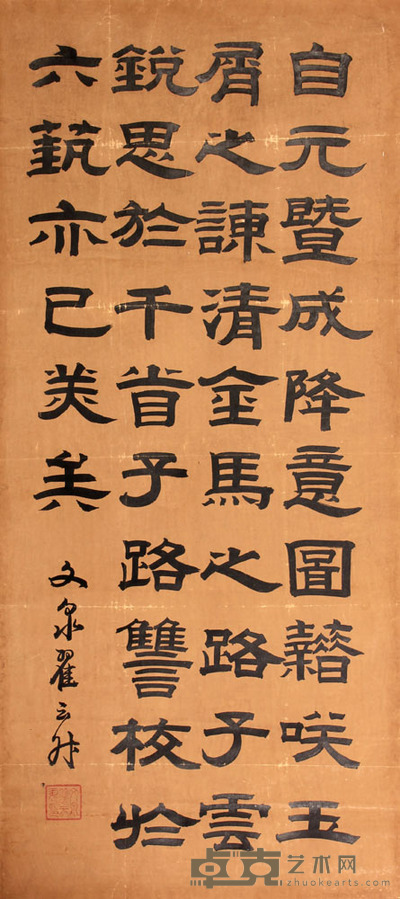 自元暨成降意圖籍咲玉
屑之諫清金馬之路子雲
銳思於千首子路讐校於
六藝亦已美矣
文泉翟云升
卓克艺术网
www.zhuokearts.com